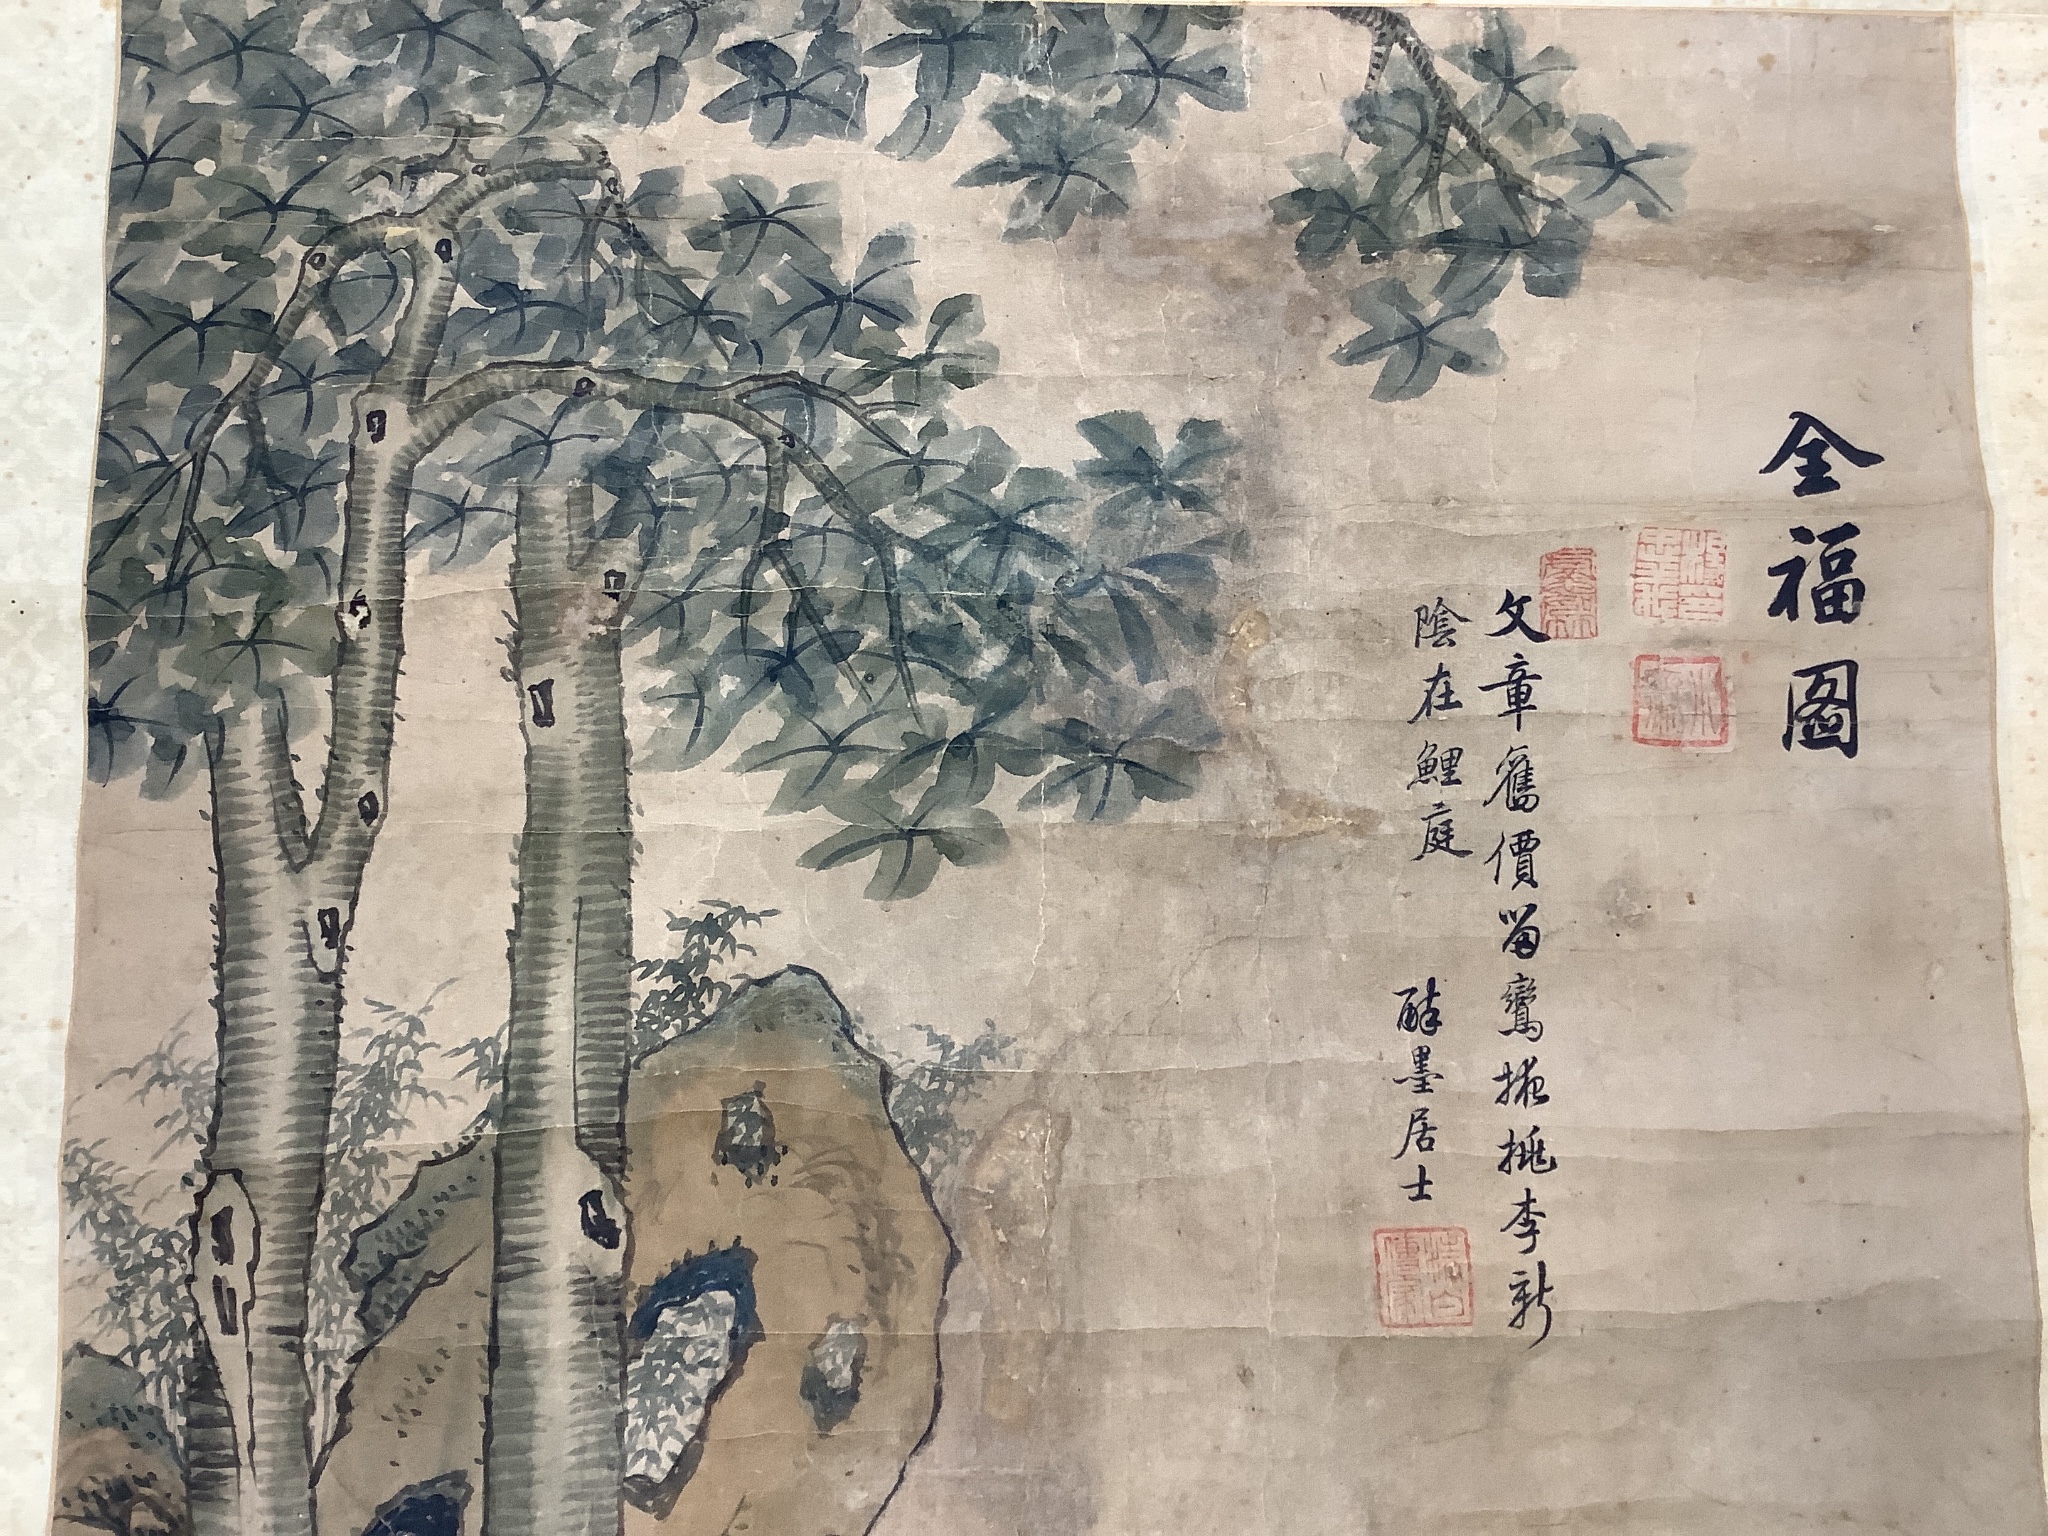 全福圖
文章舊價留鸞掖桃李新
陰在鯉庭
醉墨居士